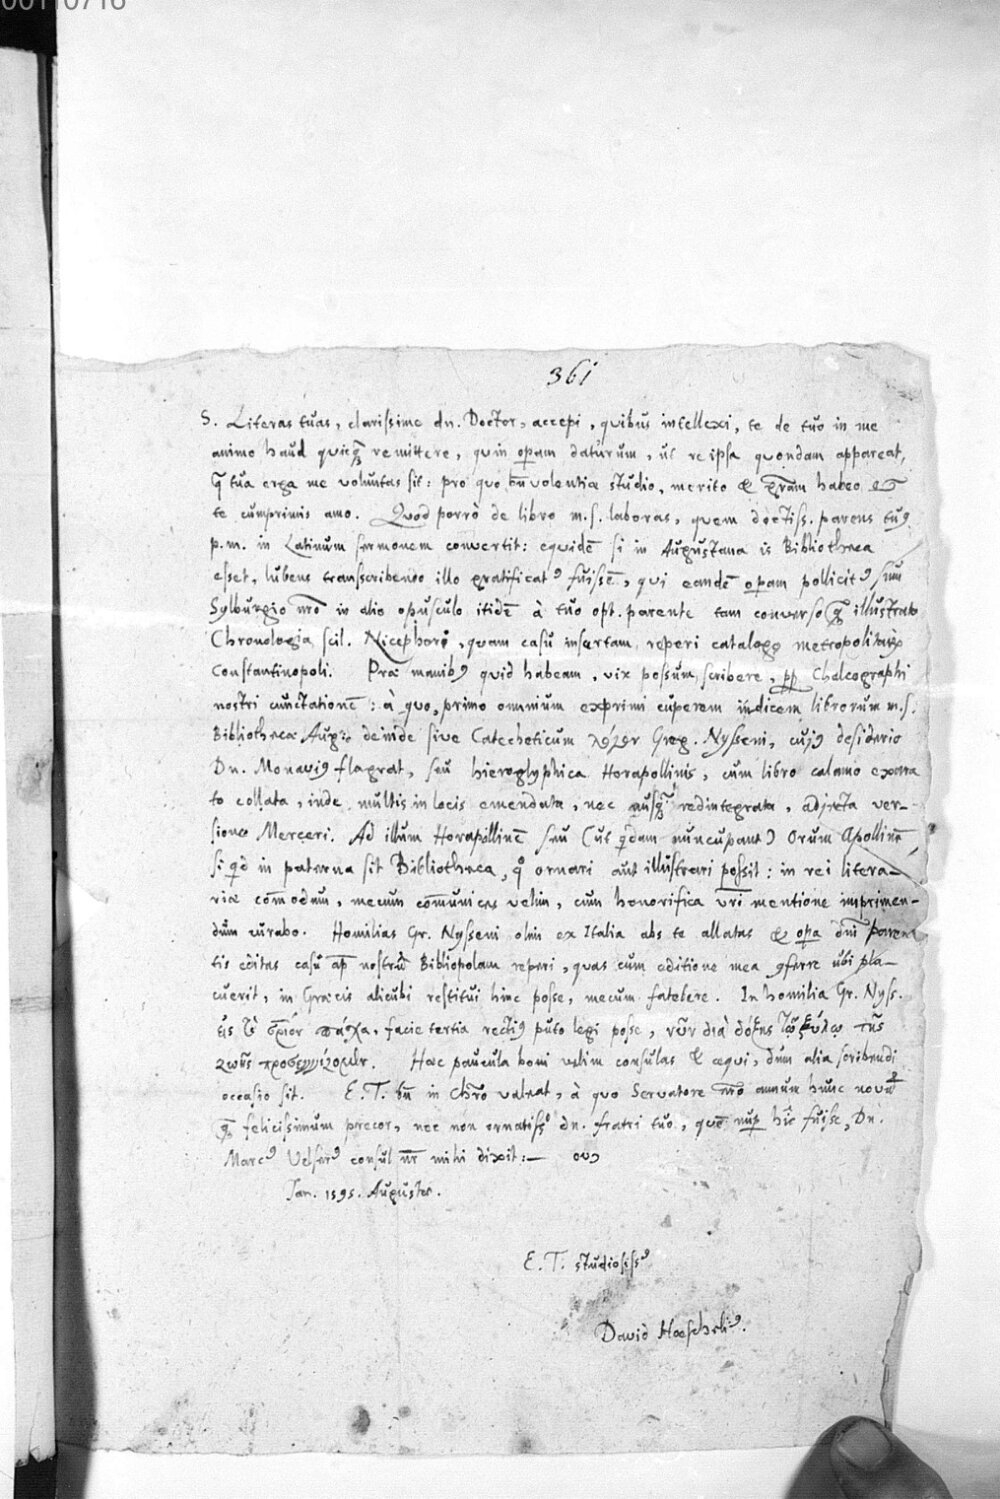 00110716
361
S. Literas tuas, clarissime dn. Doctor, accepi, quibus intellexi, te de tuo in me
animo haud quicq̃ remittere, quin opam daturum, ut re ipsa quondam appareat,
q̃ tua erga me voluntas sit: pro quo bñvolentiæ studio, merito & gr̃am habeo et
te cumprimis amo. Quod porrò de libro m.s. laboras, quem doctiss. parens tuꝰ
p.m. in Latinum sermonem convertit: equidē si in Augustana is Bibliotheca
esset, lubens transcribendo illo gratificatꝰ fuissē, qui eandē opam pollicitꝰ sum
Sylburgio nr̃o in alio opusculo itidē à tuo opt. parente tam converso q̃ illustrato
Chronologia scil. Nicephori, quam casu insertam reperi catalogo metropolitarũ
Constantinopoli. Præ manibꝰ quid habeam, vix possum scribere, pp Chalcographi
nostri cunctationē: à quo, primo omnium exprimi cuperem indicem librorum m.s.
Bibliothecæ Aug. deinde sive Catecheticum λόγον Greg. Nysseni, cujꝰ desiderio
Dn. Monaviꝰ flagrat, seu hieroglyphica Horapollinis, cum libro calamo exara
to collata, inde multis in locis emendata, nec redintegrata, adjecta ver-
sione Merceri. Ad illum Horapollinē seu (ut q̃dam nuncupant) Orum Apollinē
si qd in paterna sit Bibliotheca, q̊ ornari aut illustrari possit: in rei litera-
riæ com̃odum, mecum com̃unices velim, cum honorifica vr̃i mentione imprimen-
dum curabo. Homilias Gr. Nysseni olim ex Italia abs te allatas & opa dñi paren
tis editas casu ap nostrũ Bibliopolam reperi, quas cum editione mea ꝯferre ubi pla-
cuerit, in Græcis alicubi restitui hinc posse, mecum fatebere. In homilia Gr. Nyss.
εἰς τὸ πάσχα, facie tertia rectiꝰ puto legi posse, νῦν διὰ δόξης τῷ ξύλῳ τῆς
ζωῆς προσεγγίζομεν. Hæc paucula boni velim consulas & æqui, dum alia scribendi
occasio sit. E.T. bñ in Chr̃o valeat, à quo Servatore nr̃o annum hunc novũ
q̃ felicissimum precor, nec non ornatissꝰ dn. fratri tuo, quē nup hîc fuisse, Dn.
Marcꝰ Velserꝰ consul nr̃ mihi dixit:—
Jan. 1595. Augustæ.
E. T. studiosissꝰ
David Hœscheliꝰ.